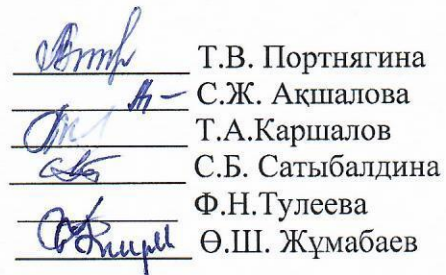 Т.В. Портнягина
С.Ж. Ақшалова
Т.А.Каршалов
С.Б. Сатыбалдина
Ф.Н.Тулеева
Ө.Ш. Жұмабаев